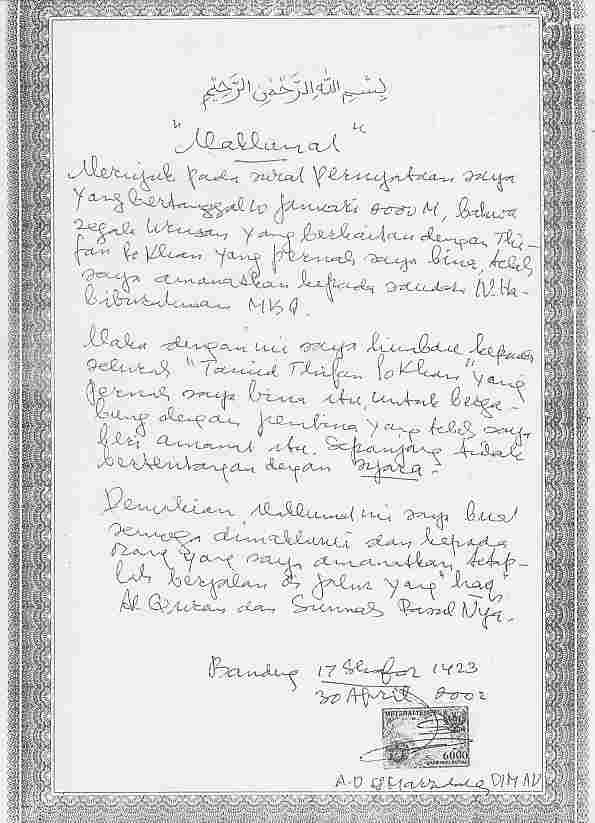 بِسْمِ اللهِ الرَّحْمٰنِ الرَّحِيْمِ
"Maklumat"
Merujuk pada surat pernyataan saya
yang bertanggal 10 Januari 2000 M, bahwa
segala urusan yang berkaitan dengan Thi-
fan Po Khan yang pernah saya bina, telah
saya amanatkan kepada saudara N. Ha-
biburahman MBA.
Maka dengan ini saya himbau kepada
seluruh "Tamid Thifan Po Khan" yang
pernah saya bina itu, untuk berga-
bung dengan pembina yang telah saya
beri amanat itu. Sepanjang tidak
bertentangan dengan syara.
Demikian Maklumat ini saya buat
semoga dimaklumi dan kepada
orang yang saya amanatkan, tetap-
lah berjalan di jalur yang "haq"
Al Qur'an dan Sunnah Rasul Nya.
Bandung 17 Shafar 1423
30 April 2002
METERAI TEMPEL
6000
A.D.